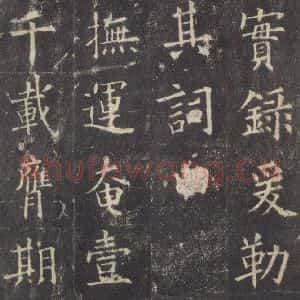 實錄爰勒
其詞
撫運奄壹
千載膺期